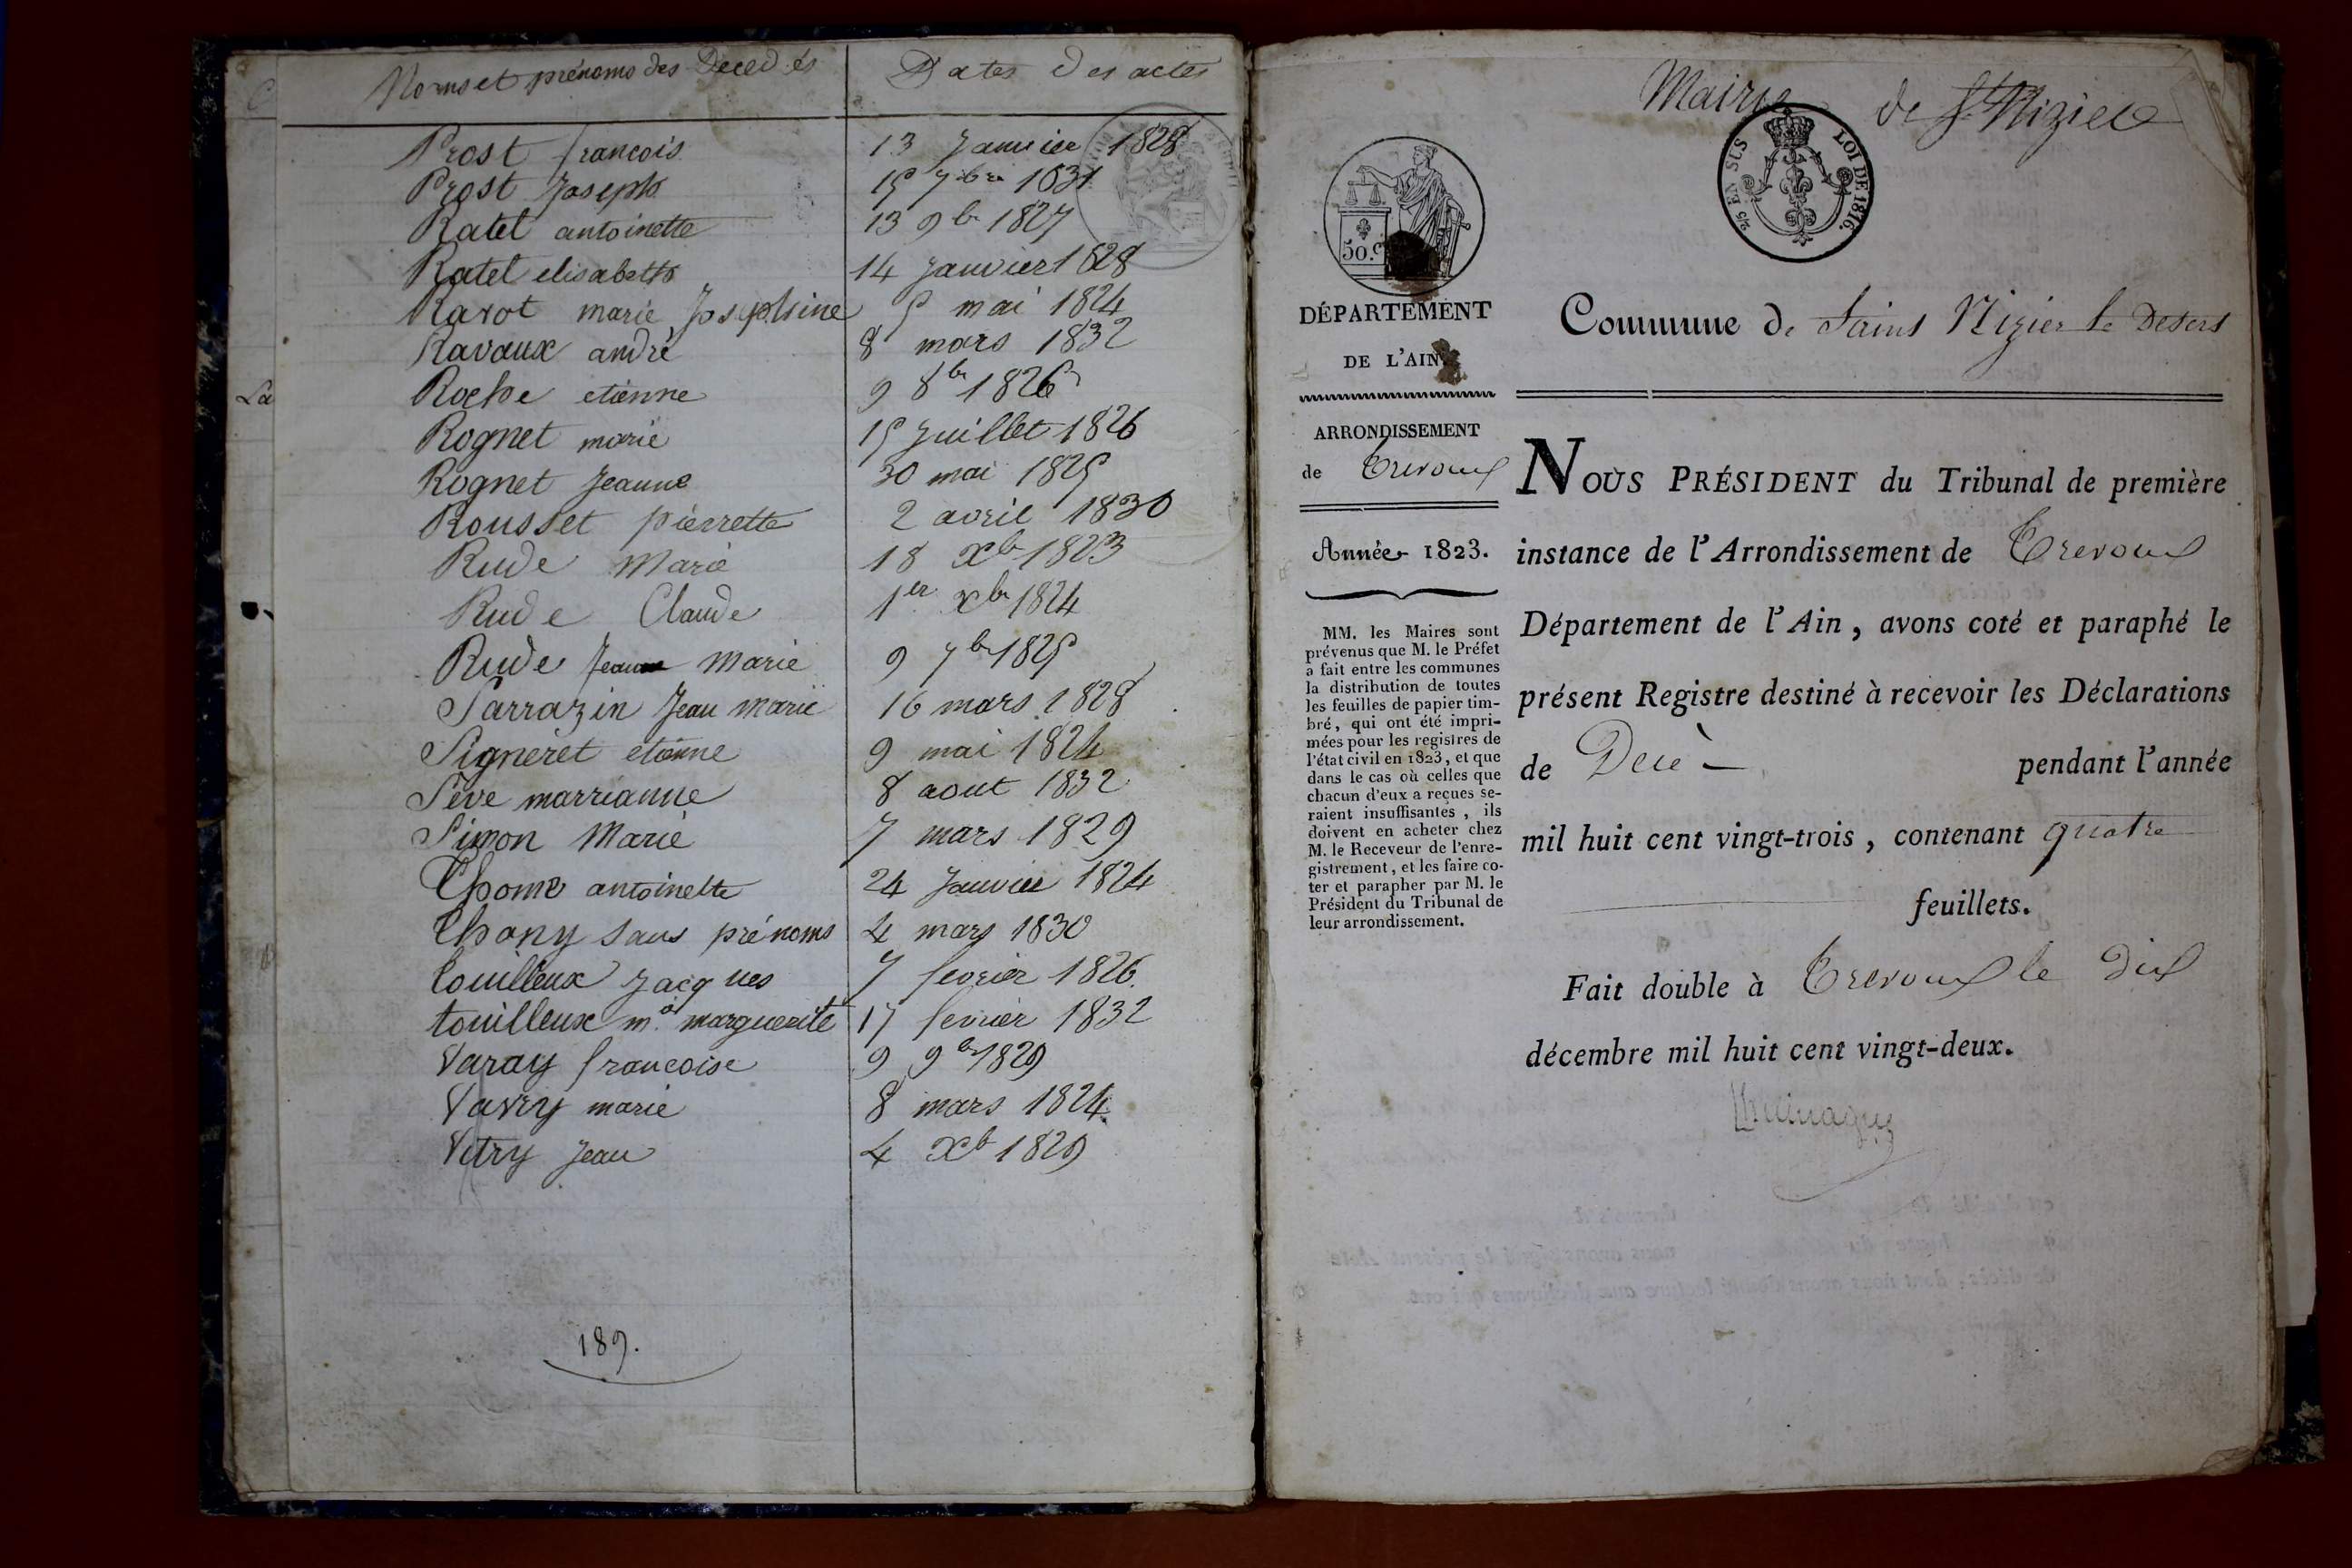 Noms et prénoms des Décedés
Dates des actes
Prost francois 13 Janvier 1828
Prost Joseph 15 7bre 1831
Ratel antoinette 13 9b 1827
Ratel elisabeth 14 Janvier 1828
Ravot marie Josephine 5 mai 1824
Ravaux andré 8 mars 1832
Roche etienne 9 8b 1826
Rognet marie 15 Juillet 1826
Rognet Jeanne 30 mai 1825
Rousset pierrette 2 avril 1830
Rude Marie 18 xb 1823
Rude Claude 1er xb 1824
Rude Jean Marie 9 7b 1825
Sarrazin Jean marie 16 mars 1828
Signeret etienne 9 mai 1824
Seve marrianne 8 aout 1832
Simon Marie 7 mars 1829
Thome antoinette 24 Janvier 1824
Thony sans prénoms 4 mars 1830
touilleux Jacques 7 fevrier 1826
touilleux me marguerite 17 fevrier 1832
Varay francoise 9 9b 1829
Vavry marie 8 mars 1824
Vitry Jean 4 xb 1829
189.
La
Mairie de St Nizier
2/5 EN SUS
LOI DE 1816.
50.c
DÉPARTEMENT
DE L'AIN
ARRONDISSEMENT
de Trevoux
Année 1823.
MM. les Maires sont
prévenus que M. le Préfet
a fait entre les communes
la distribution de toutes
les feuilles de papier tim-
bré, qui ont été impri-
mées pour les registres de
l'état civil en 1823, et que
dans le cas où celles que
chacun d'eux a reçues se-
raient insuffisantes, ils
doivent en acheter chez
M. le Receveur de l'enre-
gistrement, et les faire co-
ter et parapher par M. le
Président du Tribunal de
leur arrondissement.
Commune de Saint Nizier le Desert
NOUS PRÉSIDENT du Tribunal de première
instance de l'Arrondissement de Trevoux
Département de l'Ain, avons coté et paraphé le
présent Registre destiné à recevoir les Déclarations
de Décè pendant l'année
mil huit cent vingt-trois, contenant quatre
feuillets.
Fait double à Trevoux le dix
décembre mil huit cent vingt-deux.